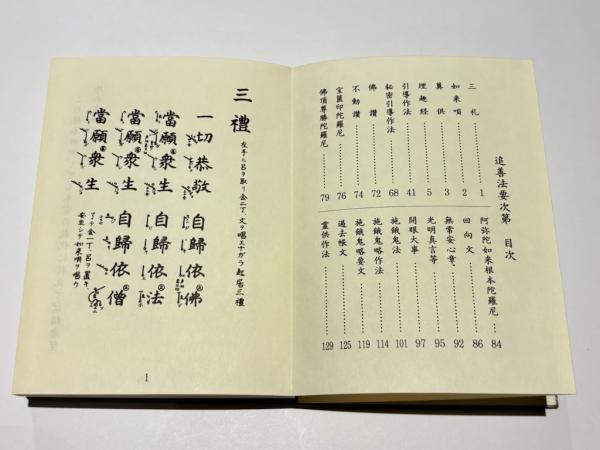 追善法要次第 目次
三礼 1
如来唄 2
奠供 3
理趣経 5
引導作法 41
秘密引導作法 68
佛讃 72
不動讃 74
宝篋印陀羅尼 76
佛頂尊勝陀羅尼 79
阿弥陀如来根本陀羅尼 84
回向文 86
無常安心章 92
光明真言等 95
開眼大事 97
施餓鬼法 101
施餓鬼略作法 114
施餓鬼略要文 119
過去帳文 125
霊供作法 129
三禮
左手ニ呂ヲ取リ金二丁、文ヲ唱エナガラ起居三禮
一切恭敬 自歸依佛
當願衆生 自歸依法
當願衆生 自歸依僧
當願衆生
1